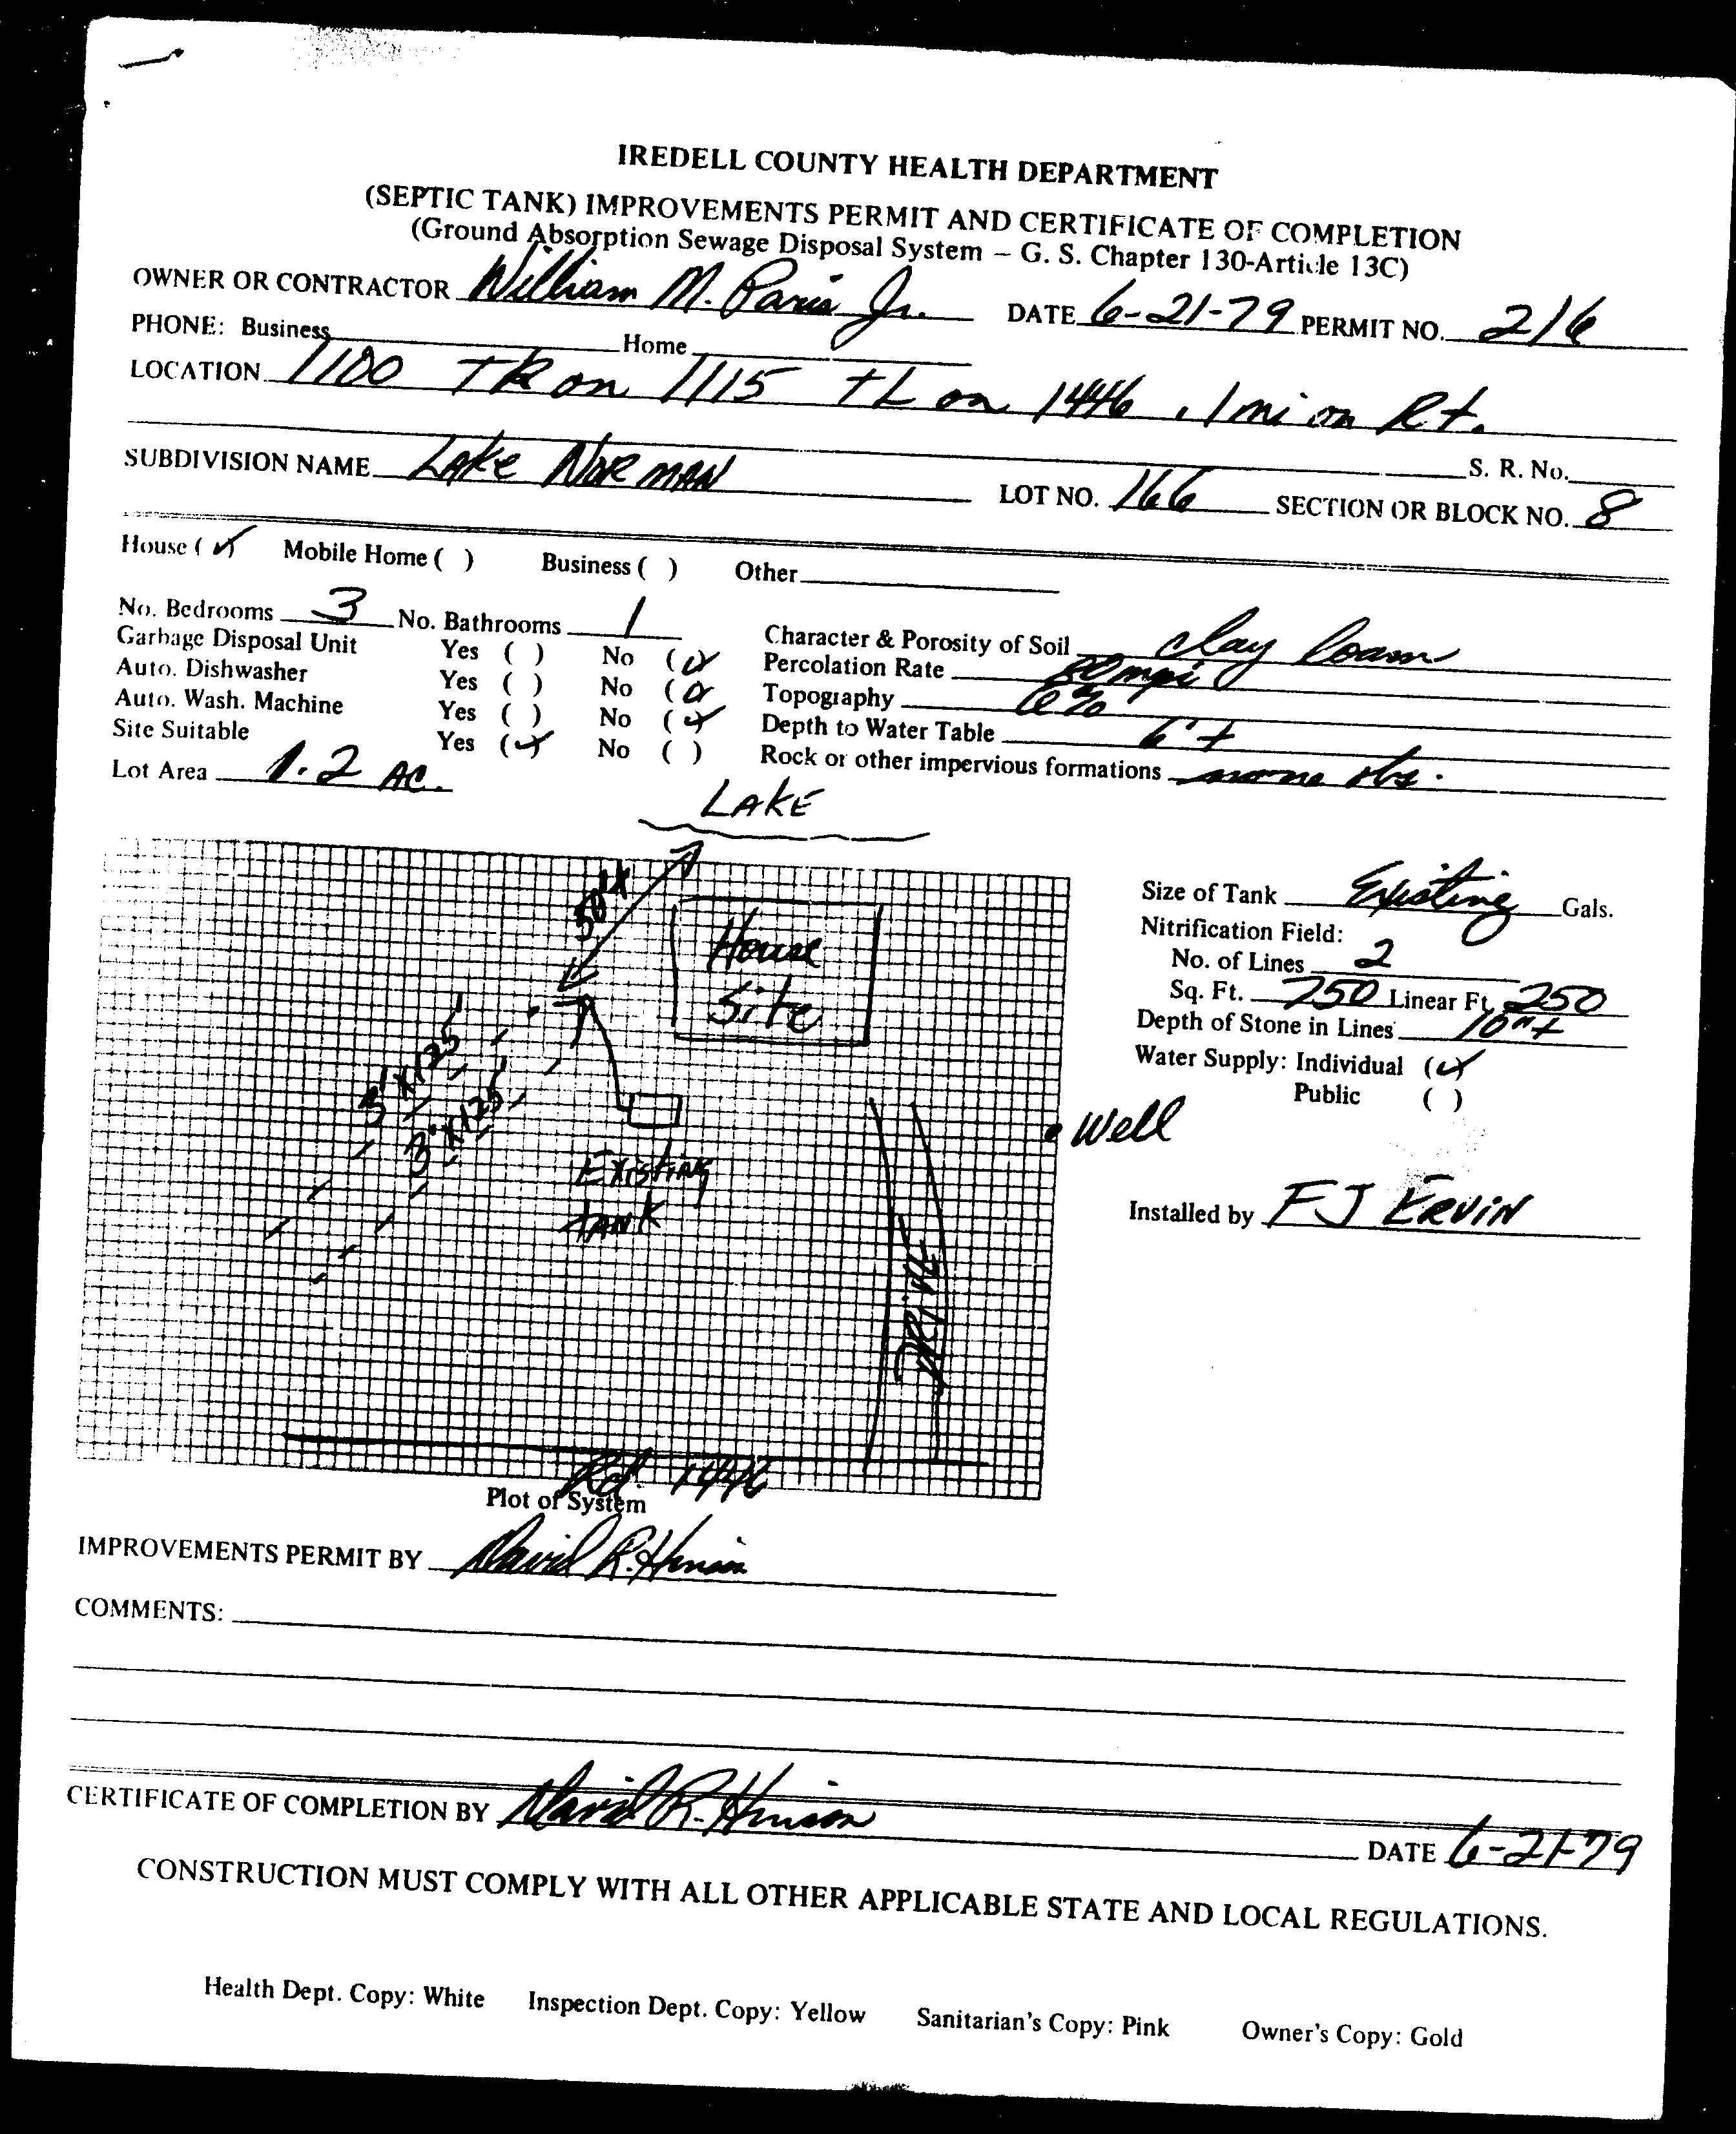 IREDELL COUNTY HEALTH DEPARTMENT
(SEPTIC TANK) IMPROVEMENTS PERMIT AND CERTIFICATE OF COMPLETION
(Ground Absorption Sewage Disposal System – G. S. Chapter 130-Article 13C)
OWNER OR CONTRACTOR William M. Paris Jr. DATE 6-21-79 PERMIT NO. 216
PHONE: Business Home
LOCATION 1100 TR on 1115 TL on 1446 .1 mi on Rt.
S. R. No.
SUBDIVISION NAME LAKE NORMAN LOT NO. 166 SECTION OR BLOCK NO. 8
House (✓) Mobile Home ( ) Business ( ) Other
No. Bedrooms 3 No. Bathrooms 1 Character & Porosity of Soil clay loam
Garbage Disposal Unit Yes ( ) No (✓) Percolation Rate mpi
Auto. Dishwasher Yes ( ) No (✓) Topography 6%
Auto. Wash. Machine Yes ( ) No (✓) Depth to Water Table 6'+
Site Suitable Yes (✓) No ( ) Rock or other impervious formations none obs.
Lot Area 1.2 AC.
LAKE
50'+
House
Site
3'X125'
3'X125'
Existing
TANK
DRIVE
Rd 1446
Plot of System
Size of Tank Existing Gals.
Nitrification Field:
No. of Lines 2
Sq. Ft. 750 Linear Ft. 250
Depth of Stone in Lines 10"+
Water Supply: Individual (✓)
Public ( )
Well
Installed by FJ ERVIN
IMPROVEMENTS PERMIT BY David R. Hinson
COMMENTS:
CERTIFICATE OF COMPLETION BY David R. Hinson
DATE 6-21-79
CONSTRUCTION MUST COMPLY WITH ALL OTHER APPLICABLE STATE AND LOCAL REGULATIONS.
Health Dept. Copy: White Inspection Dept. Copy: Yellow Sanitarian's Copy: Pink Owner's Copy: Gold